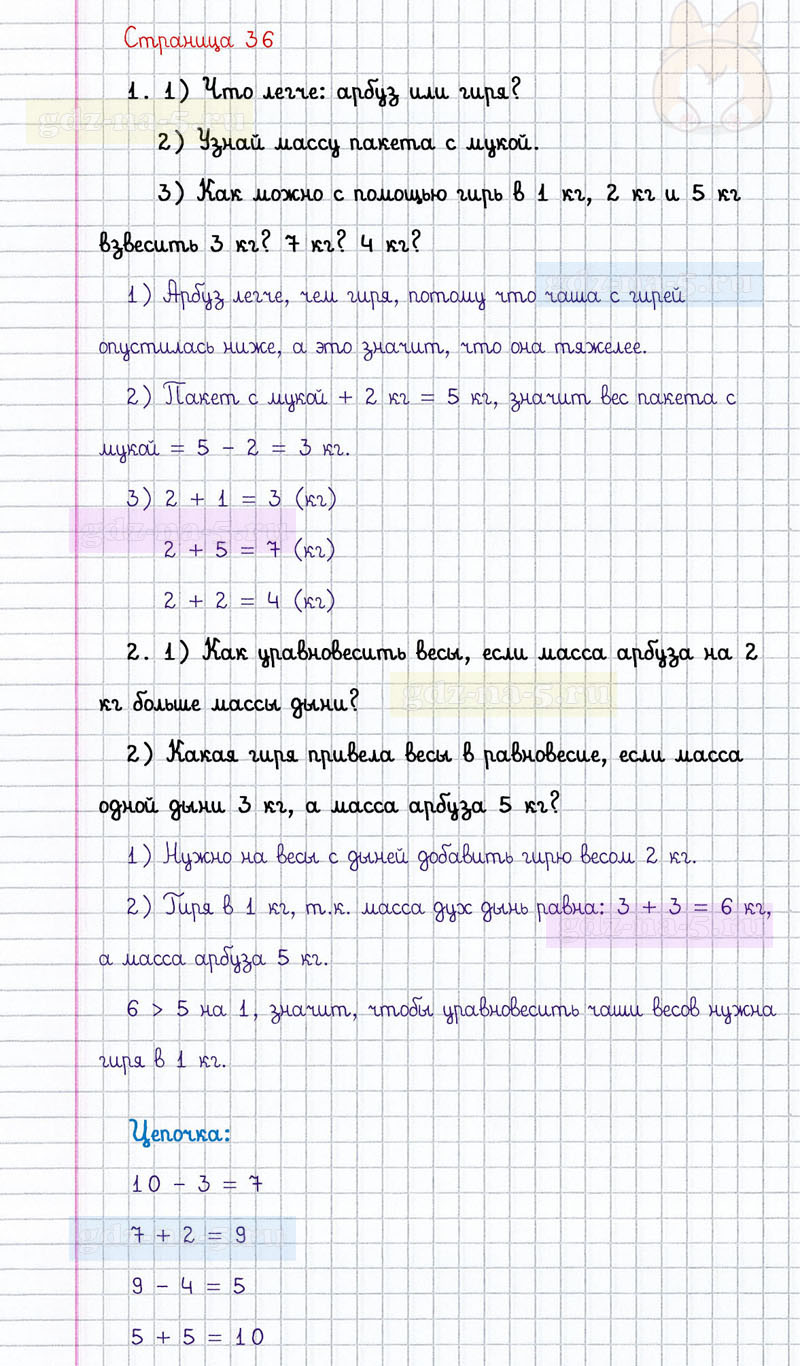 Страница 36
1. 1) Что легче: арбуз или гиря?
gdz-na-5.ru
2) Узнай массу пакета с мукой.
3) Как можно с помощью гирь в 1 кг, 2 кг и 5 кг
взвесить 3 кг? 7 кг? 4 кг?
gdz-na-5.ru
1) Арбуз легче, чем гиря, потому что чаша с гирей
опустилась ниже, а это значит, что она тяжелее.
2) Пакет с мукой + 2 кг = 5 кг, значит вес пакета с
мукой = 5 - 2 = 3 кг.
3) 2 + 1 = 3 (кг)
gdz-na-5.ru
2 + 5 = 7 (кг)
2 + 2 = 4 (кг)
2. 1) Как уравновесить весы, если масса арбуза на 2
кг больше массы дыни?
gdz-na-5.ru
2) Какая гиря привела весы в равновесие, если масса
одной дыни 3 кг, а масса арбуза 5 кг?
1) Нужно на весы с дыней добавить гирю весом 2 кг.
2) Гиря в 1 кг, т.к. масса дух дынь равна: 3 + 3 = 6 кг,
gdz-na-5.ru
а масса арбуза 5 кг.
6 > 5 на 1, значит, чтобы уравновесить чаши весов нужна
гиря в 1 кг.
Цепочка:
10 - 3 = 7
7 + 2 = 9
gdz-na-5.ru
9 - 4 = 5
5 + 5 = 10